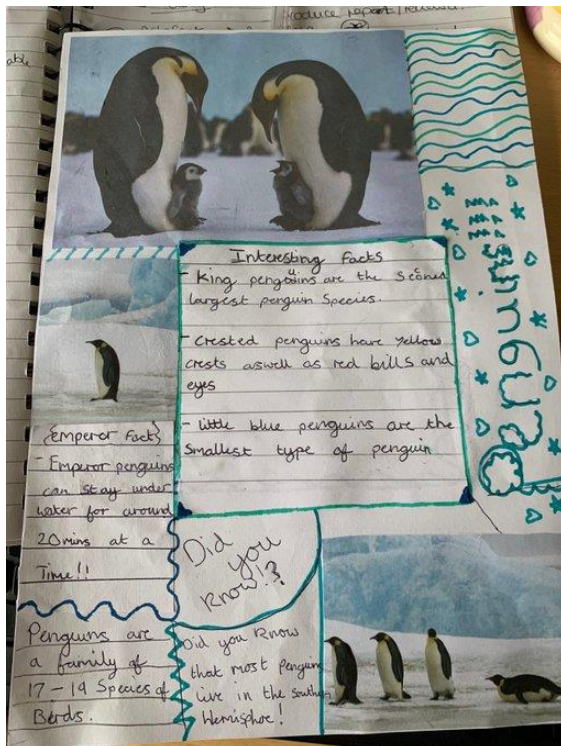 able
produce report/
Penguins
Interesting Facts
- King penguins are the Second
largest penguin Species.
- Crested penguins have yellow
crests aswell as red bills and
eyes
- little blue penguins are the
Smallest type of penguin
{Emperor Fact}
- Emperor penguins
can stay under
water for around
20mins at a
Time!!
Did
you
know!?
Penguins are
a family of
17-19 Species of
Birds.
Did you know
that most Penguins
live in the southern
Hemisphre!